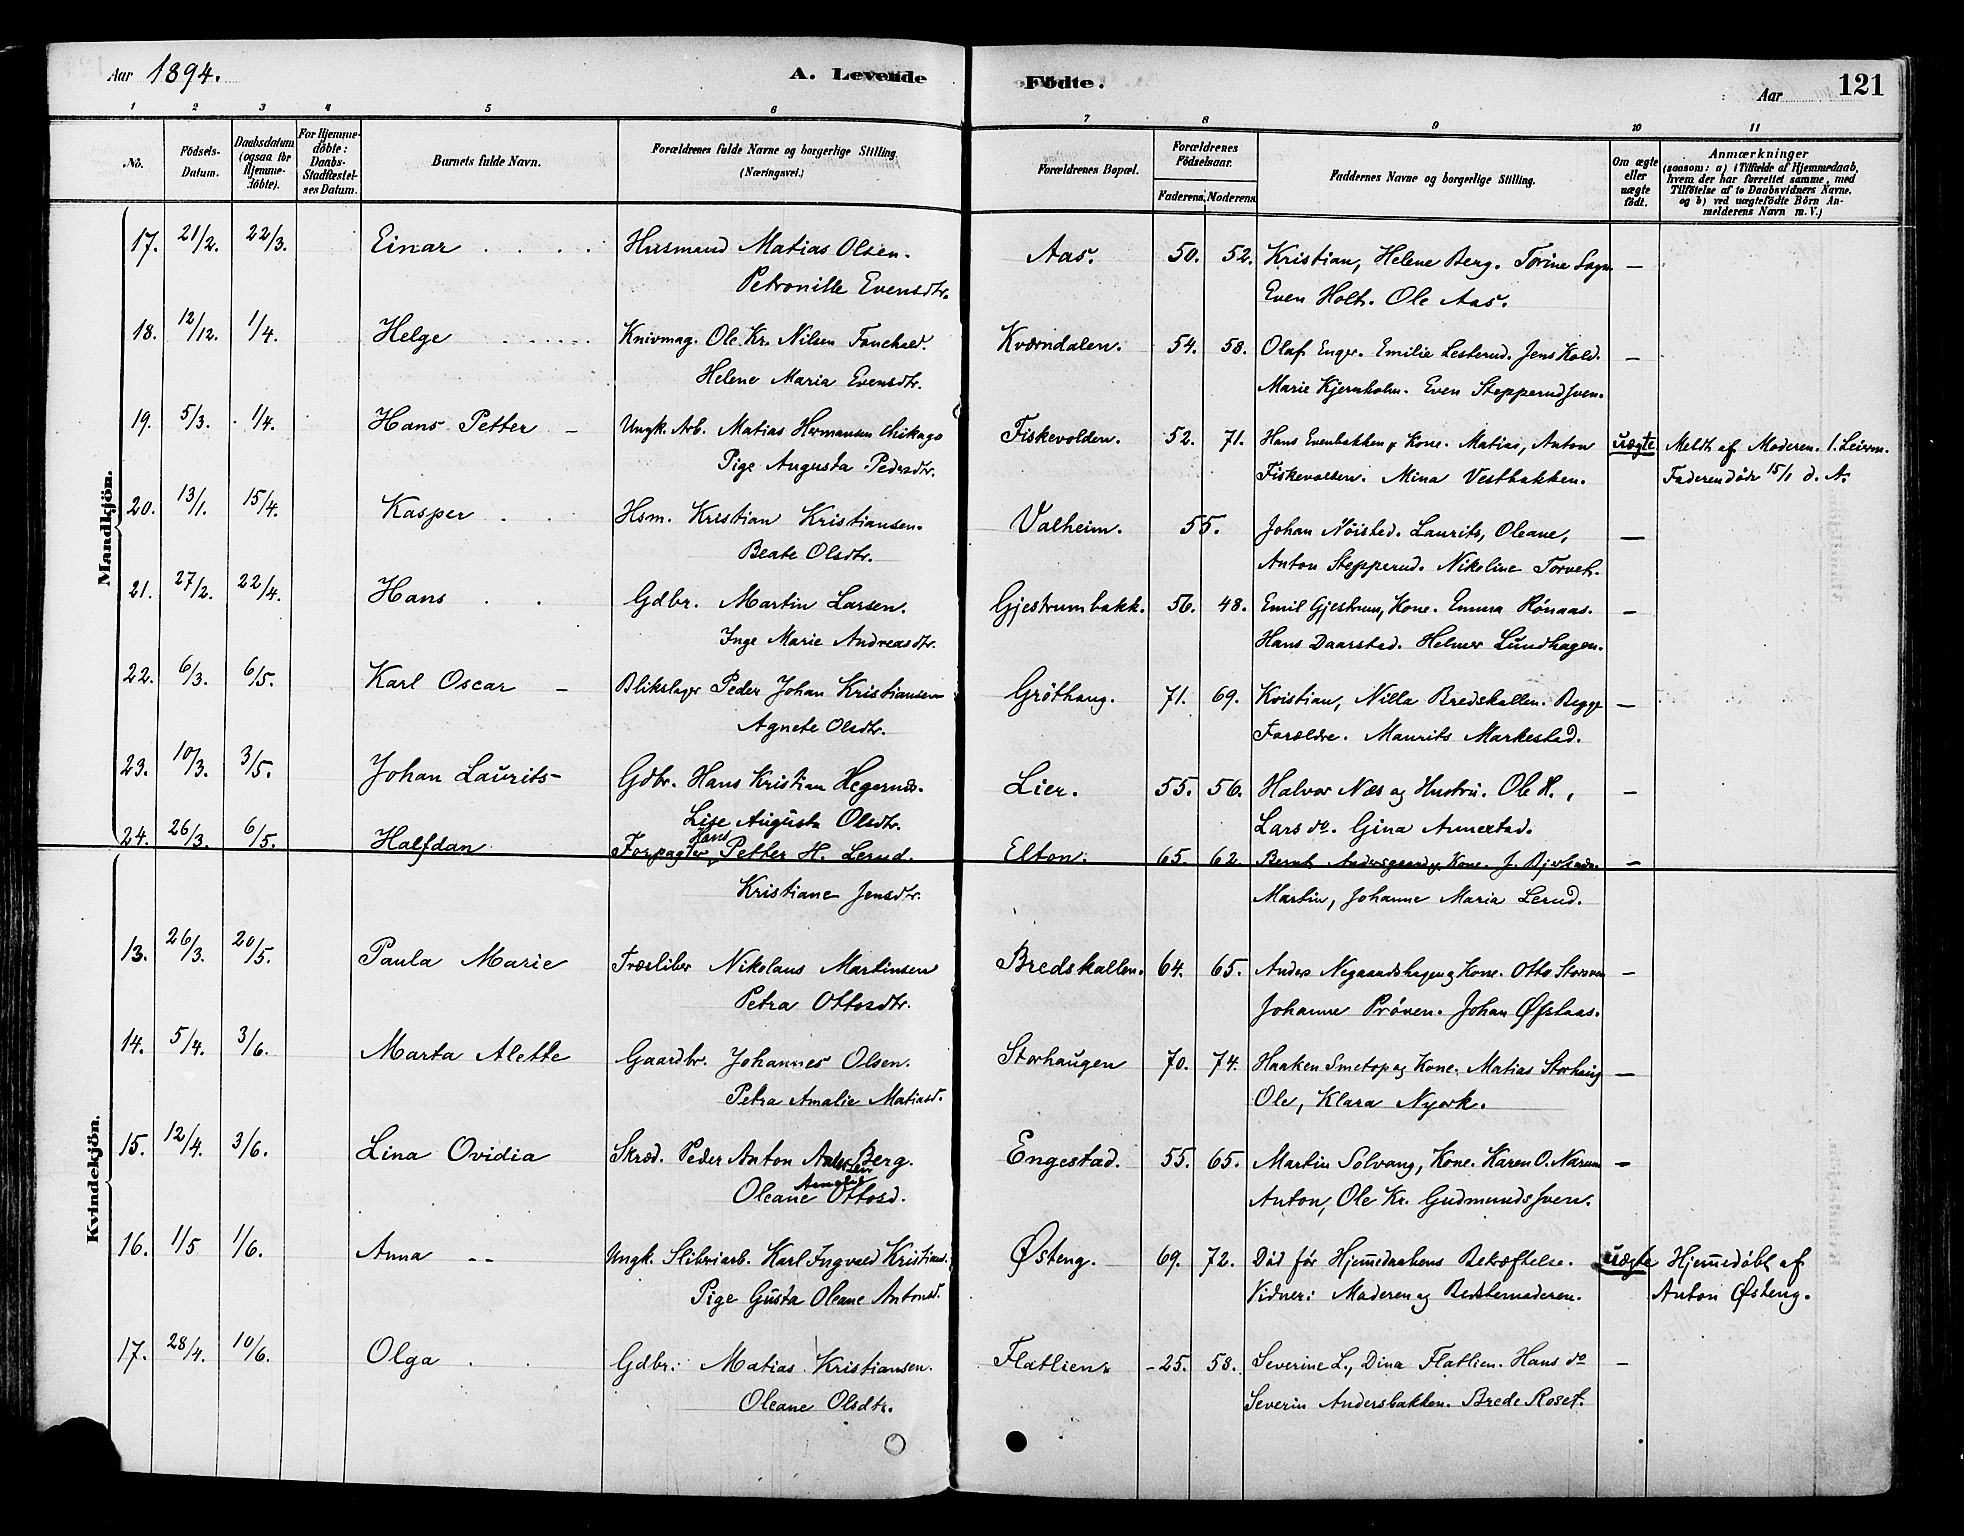 Aar 1894. A. Levende Födte. Aar 121
1 2 3 4 5 6 7 8 9 10 11
No. Födsels-Datum. Daabsdatum (ogsaa for Hjemme-döbte). For Hjemme-döbte: Daabs-Stadfæstel-ses Datum. Barnets fulde Navn. Forældrenes fulde Navne og borgerlige Stilling. (Næringsvei.) Forældrenes Bopæl. Forældrenes Födselsaar. Faderens. Moderens. Faddernes Navne og borgerlige Stilling. Om ægte eller uægte födt. Anmærkninger (saasom: a) i Tilfælde af Hjemmedaab, hvem der har forrettet samme, med Tilföielse af to Daabsvidners Navne. og b) ved uægtefödte Börn An-melderens Navn m. V.)
Mandkjön.
17. 21/2. 22/3. Einar Husmand Matias Olsen. Aas. 50. 52. Kristian, Helene Berg. Torine —
Petronille Evensdtr. Even Holt. Ole Aas.
18. 12/12. 1/4. Helge Knivmag. Ole Kr. Nilsen Kværndalen. 54. 58. Olaf Enger. Emilie Lesterud. Jens Kold. —
Helene Maria Evensdtr. Marie Kjernholm. Even Stepperudsven.
19. 5/3. 1/4. Hans Petter — Ungk. Arb. Matias Hermansen Chikago Fiskevolden. 52. 71. Hans Evenbakken, Kone. Matias, Anton uægte Meldt af Moderen. 1. Leierm.
Pige Augusta Pedersdtr. Fiskevolden. Mina Vestbakken. Faderen döde 15/1 d. A.
20. 13/1. 15/4. Kasper Hsm. Kristian Kristiansen. Valheim. 55. Johan Nöisted. Laurits, Oleane, —
Beate Olsdtr. Anton Stepperud. Nikoline Torvet.
21. 27/2. 22/4. Hans Gdbr. Martin Larsen. Gjestrumbakk. 56. 48. Emil Gjestrum, Kone. Emma Rönaas. —
Inge Marie Andreasdtr. Hans Daarstad. Helmer Lundhagen.
22. 6/3. 6/5. Karl Oscar — Blikslager Peder Johan Kristiansen Gröthaug. 71. 69. Kristian, Nilla Bredskallen. Begge —
Agnete Olsdtr. Forældre. Maurits Markestad.
23. 10/3. 3/5. Johan Laurits — Gdbr. Hans Kristian Lier. 55. 56. Halvor Næs og Hustru. Ole H., —
Lise Augusta Olsdtr. Lars do. Gina Annexstad.
24. 26/3. 6/5. Halfdan Forpagter, Hans Petter H. Lerud. Elton. 65. 62 Bernt Kone. J. —
Kristiane Jensdtr. Martin, Johanne Maria Lerud.
Kvindekjön.
13. 26/3. 20/5. Paula Marie Træsliber Nikolaus Martinsen Bredskallen. 64. 65. Anders Negaardshagen og Kone. Otto —
Petra Ottosdtr. Johanne Pröven. Johan Øfstaas.
14. 5/4. 3/6. Marta Alette Gaardbr. Johannes Olsen. Storhaugen 70. 74. Haaken Smetop og Kone. Matias Storhaug —
Petra Amalie Matiasd. Ole, Klara Nyork.
15. 12/4. 3/6. Lina Ovidia Skræd. Peder Anton Andersen Berg. Engestad. 55. 65. Martin Solvang, Kone. Karen O. Narum —
Oleane Amalie Ottosd. Anton, Ole Kr. Gudmundsven.
16. 1/5 1/6. Anna Ungk. Sliberiarb. Karl Ingvald Kristians. Østeng. 69. 72. Död för Hjemmedaabens Bekræftelse. uægte Hjemmedöbt af
Pige Gusta Oleane Antonsd. Vidner: Moderen og Bedstemoderen. Anton Østeng.
17. 28/4. 10/6. Olga Gdbr. Matias Kristiansen. Flatlien. 25. 58. Severine L., Dina Flatlien. Hans do —
Oleane Olsdtr. Severin Andersbakken. Brede Roset.